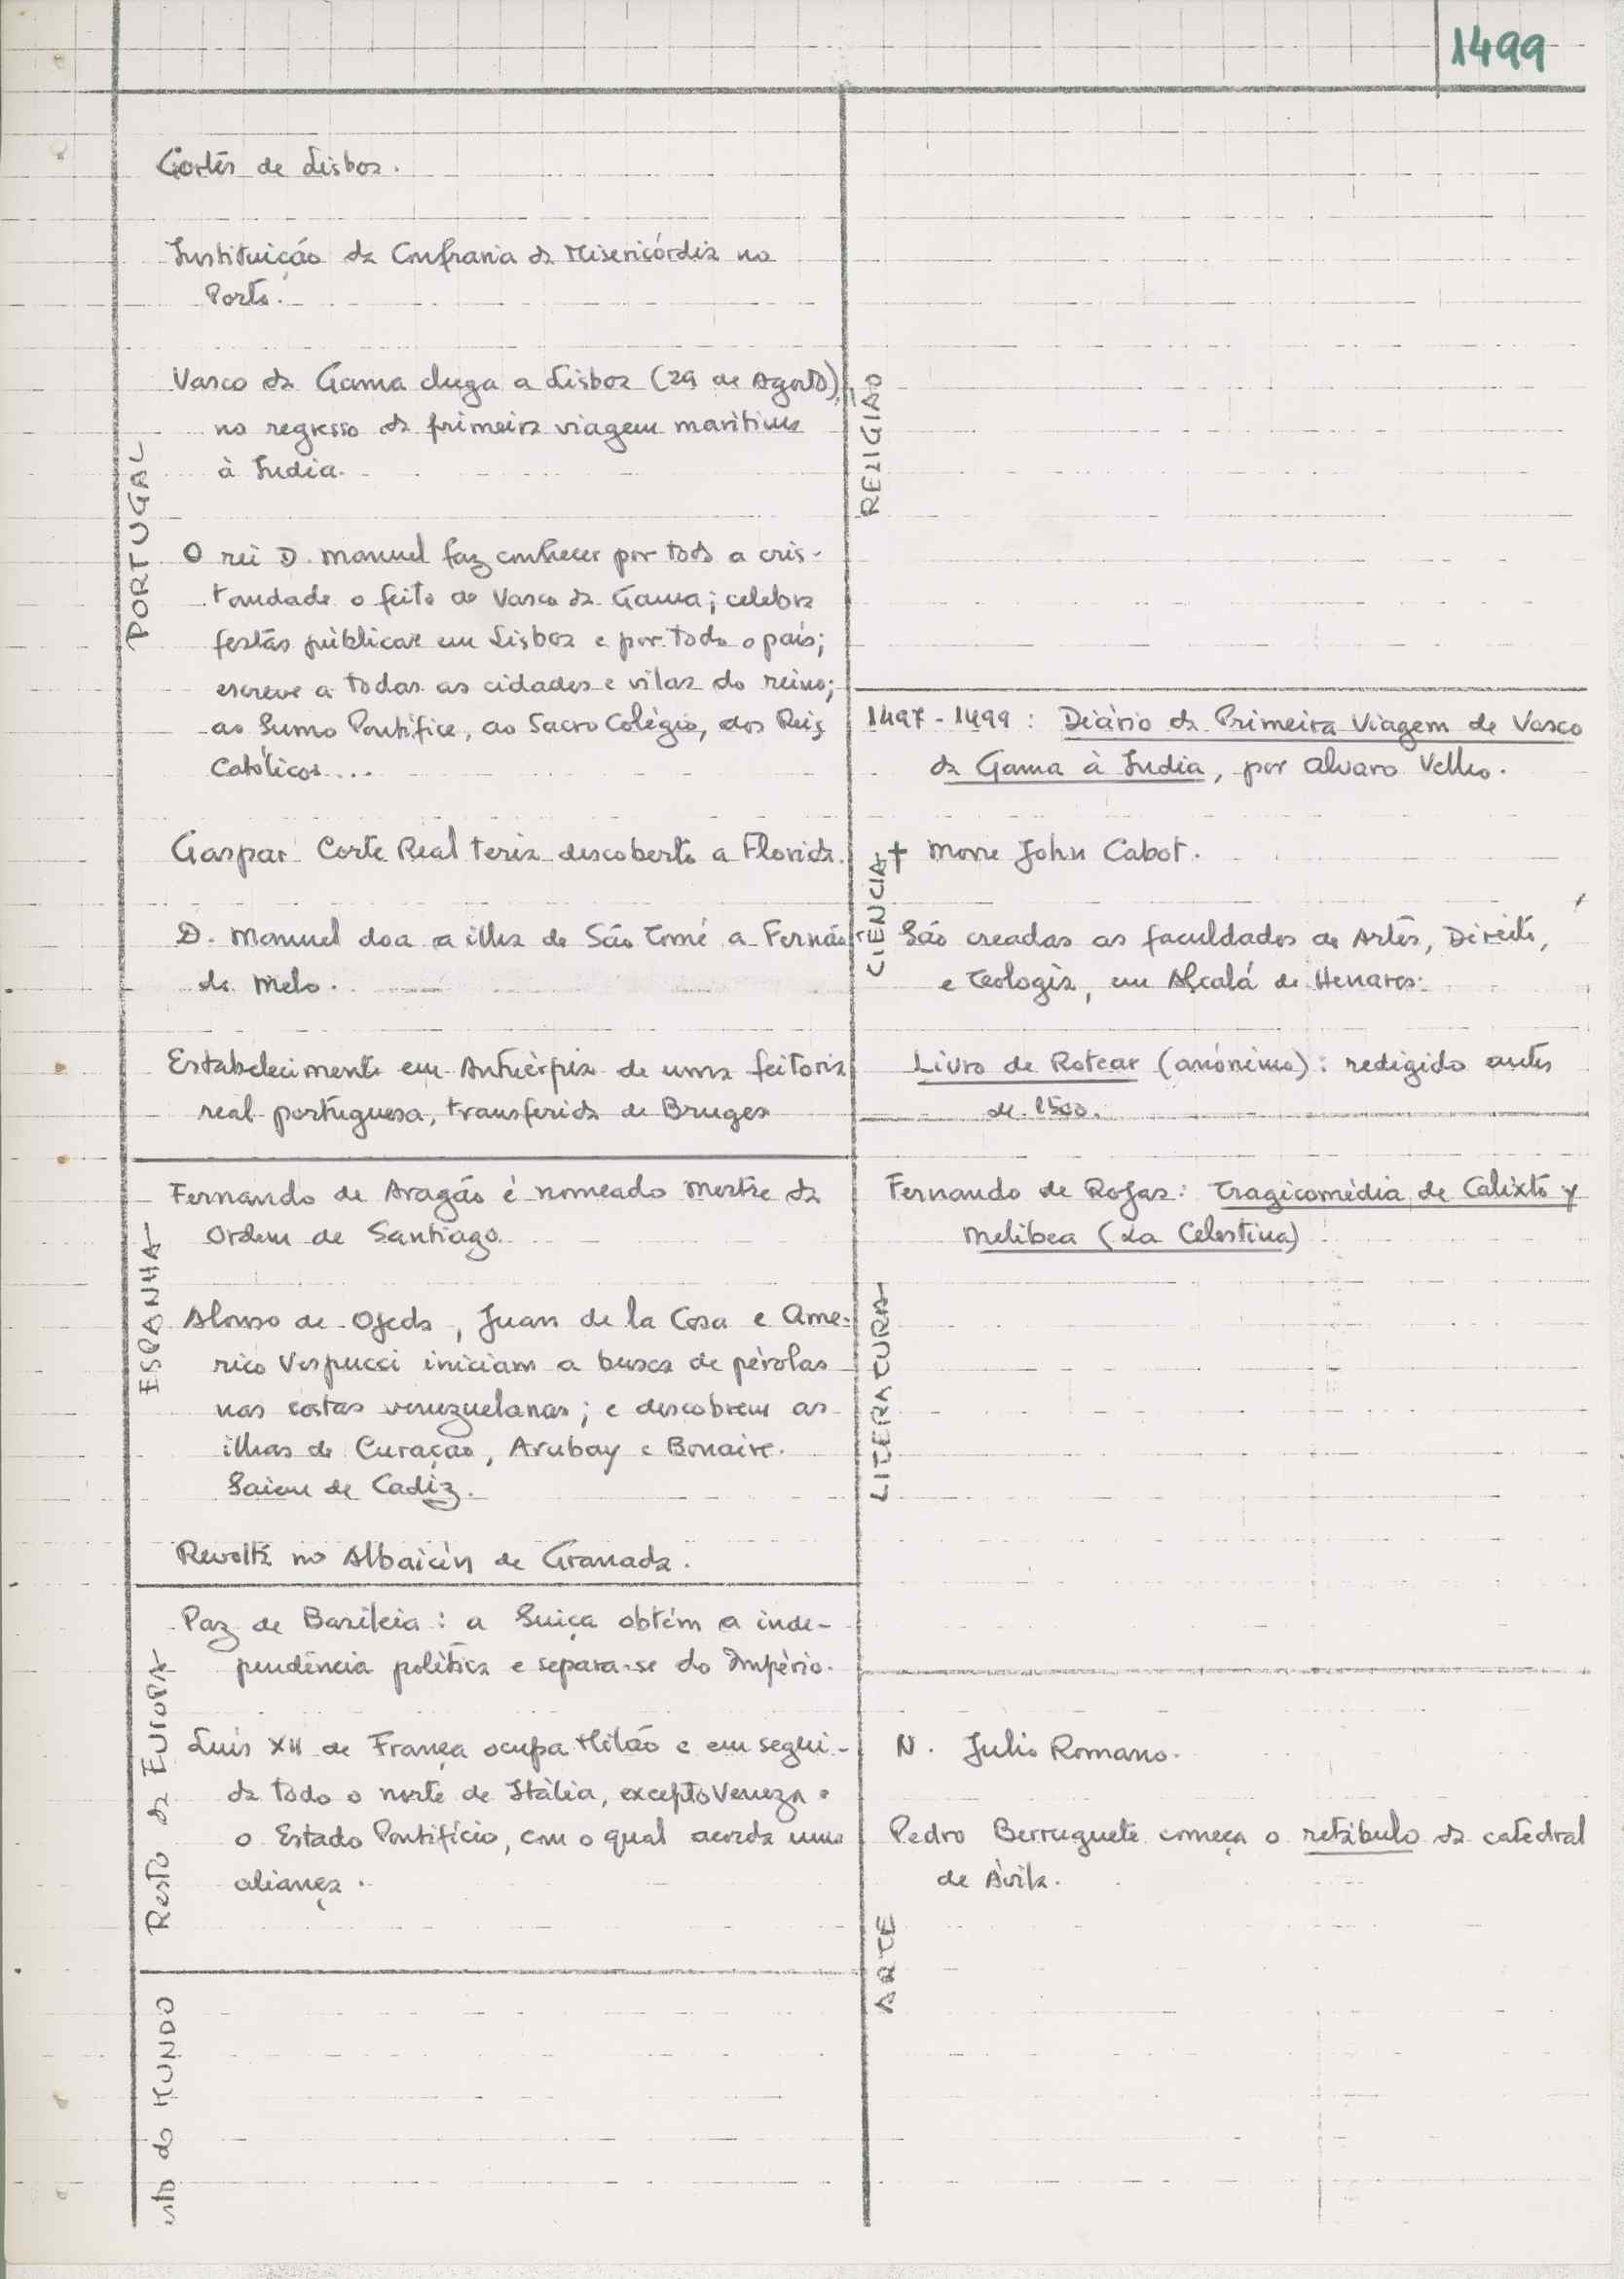 1499
PORTUGAL
Cortes de Lisboa.
Instituição da Confraria da Misericórdia no
Porto.
Vasco da Gama chega a Lisboa (29 de Agosto),
no regresso da primeira viagem marítima
à India.
O rei D. Manuel faz conhecer por toda a cris-
tandade o feito de Vasco da Gama; celebra
festas públicas em Lisboa e por todo o país;
escreve a todas as cidades e vilas do reino;
ao Sumo Pontífice, ao Sacro Colégio, aos Reis
Católicos...
Gaspar Corte Real teria descoberto a Florida.
D. Manuel doa a ilha de São Tomé a Fernão
de Melo.
Estabelecimento em Antuérpia de uma feitoria
real portuguesa, transferida de Bruges
ESPANHA
Fernando de Aragão é nomeado Mestre da
Ordem de Santiago.
Alonso de Ojeda, Juan de la Cosa e Ame-
rico Vespucci iniciam a busca de pérolas
nas costas venezuelanas; e descobrem as
ilhas de Curaçao, Arubay e Bonaire.
Saiem de Cadiz.
Revolta no Albaicín de Granada.
Resto da EUROPA
Paz de Basileia: a Suiça obtém a inde-
pendência política e separa-se do Império.
Luis XII de França ocupa Milão e em segui-
da todo o norte de Itália, excepto Veneza e
o Estado Pontifício, com o qual acorda uma
aliança.
esto do MUNDO
RELIGIÃO
CIÊNCIA
1497-1499: Diário da Primeira Viagem de Vasco
da Gama à India, por Alvaro Velho.
† Morre John Cabot.
São creadas as faculdades de Artes, Direito,
e Teologia, em Alcalá de Henares.
Livro de Rotear (anónimo): redigido antes
de 1500.
LITERATURA
Fernando de Rojas: Tragicomédia de Calixto y
Melibea (La Celestina)
ARTE
N. Julio Romano.
Pedro Berruguete começa o retábulo da catedral
de Ávila.